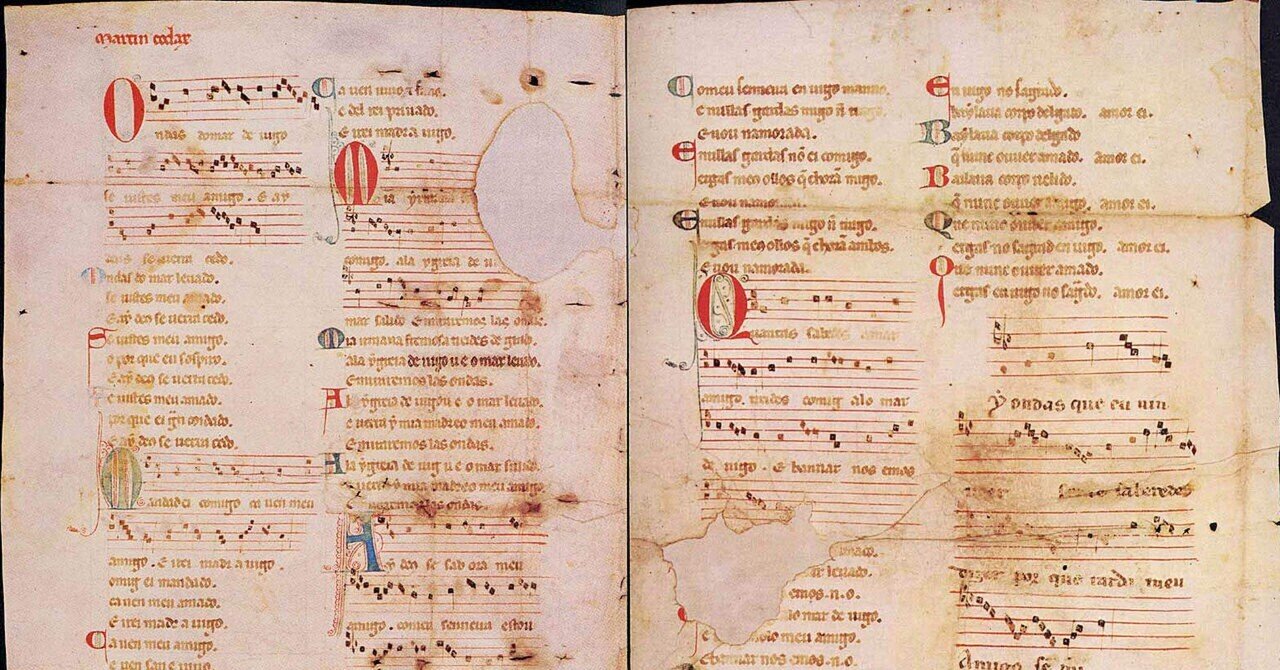 Martin codax
Ondas do mar de uigo
se uistes meu amigo. E ay
deus se uerra cedo.
Ondas do mar leuado.
se uistes meu amado.
E ay deus se uerra cedo.
Se uistes meu amigo.
o por que eu sospiro.
E ay deus se uerra cedo.
Se uistes meu amado.
por que ei gran
E ay deus se uerra cedo.
Mandad ei comigo ca uen meu
amigo. E irei madr a uigo.
comig ei mandado.
ca uen meu amado.
E irei madr a uigo.
Ca uen meu amigo.
e uen san e uiuo
Ca uen uiuo
e del rei priuado.
E irei madr a uigo.
M
comigo. ala ygreia de u
mar salido E miraremos las ondas.
Mia irmana fremosa treides de grado.
ala ygreia de uigo u e o mar leuado.
E miraremos las ondas.
Ala ygreia de uigo u e o mar leuado.
e uerra y mia madre o meu amado.
E miraremos las ondas.
Ala ygreia de uig u e o mar salido.
e uerra y mia madre o meu amigo
E miraremos las ondas.
Ay deus se sab ora meu
amigo. com eu senneira estou
Com eu senneira en uigo manno.
e nullas gardas migo
E uou namorada.
E nullas gardas nõ ei comigo.
ergas meus ollos q̃ chorã migo.
E uou namorada.
E nullas gardas migo
ergas meus ollos q̃ chorã ambos.
E uou namorada.
Quantas sabedes amar
amigo. treides comig a lo mar
de uigo. E bannar nos emos
leuado.
emos.n.o.
lo mar de uigo.
meu amigo.
E bannar nos emos.n.o.
En uigo no sagrado.
baylaua corpo delgado. amor ei.
Baylaua corpo delgado
q̃ nunc ouuer amado. amor ei.
Bailaua corpo uelido.
q̃ nunc ouuer amigo. amor ei.
Que nunc ouuer amigo.
ergas no sagrad en uigo. amor ei.
Que nunc ouuer amado.
ergas en uigo no sagrado. amor ei.
Y ondas que eu uin
ueer saberedes
dizer por que tarda meu
Amigo